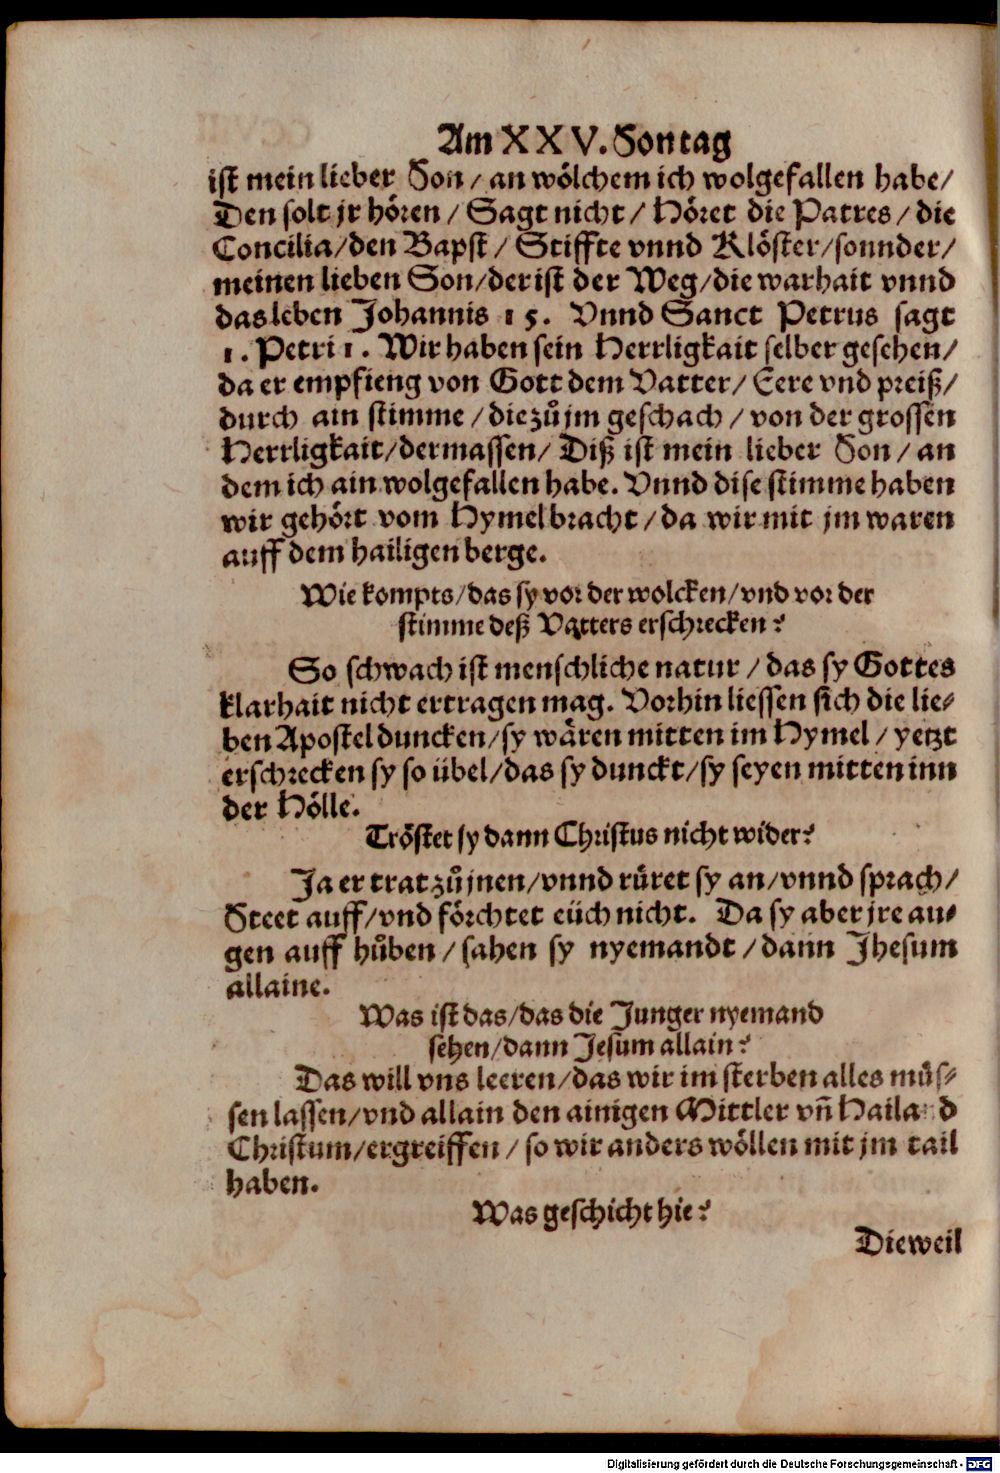 Am XXV. Sontag
ist mein lieber Son / an wölchem ich wolgefallen habe /
Den solt jr hören / Sagt nicht / Höret die Patres / die
Concilia / den Bapst / Stiffte vnnd Klöster / sonnder /
meinen lieben Son / der ist der Weg / die warhait vnnd
das leben Johannis 15. Vnnd Sanct Petrus sagt
1. Petri 1. Wir haben sein Herrligkait selber gesehen /
da er empfieng von Gott dem Vatter / Eere vnd preiß /
durch ain stimme / die zůjm geschach / von der grossen
Herrligkait / dermassen / Diß ist mein lieber Son / an
dem ich ain wolgefallen habe. Vnnd dise stimme haben
wir gehört vom Hymel bracht / da wir mit jm waren
auff dem hailigen berge.
Wie kompts / das sy vor der wolcken / vnd vor der
stimme deß Vatters erschrecken?
So schwach ist menschliche natur / das sy Gottes
klarhait nicht ertragen mag. Vorhin liessen sich die lie-
ben Apostel duncken / sy wären mitten im Hymel / yetzt
erschrecken sy so übel / das sy dunckt / sy seyen mitten inn
der Hölle.
Tröstet sy dann Christus nicht wider?
Ja er trat zů jnen / vnnd rüret sy an / vnnd sprach /
Steet auff / vnd förchtet eüch nicht. Da sy aber jre au-
gen auff hůben / sahen sy nyemandt / dann Jhesum
allaine.
Was ist das / das die Junger nyemand
sehen / dann Jesum allain?
Das will vns leeren / das wir im sterben alles müs-
sen lassen / vnd allain den ainigen Mittler vñ Hailand
Christum / ergreiffen / so wir anders wöllen mit jm tail
haben.
Was geschicht hie?
Dieweil
Digitalisierung gefördert durch die Deutsche Forschungsgemeinschaft - DFG